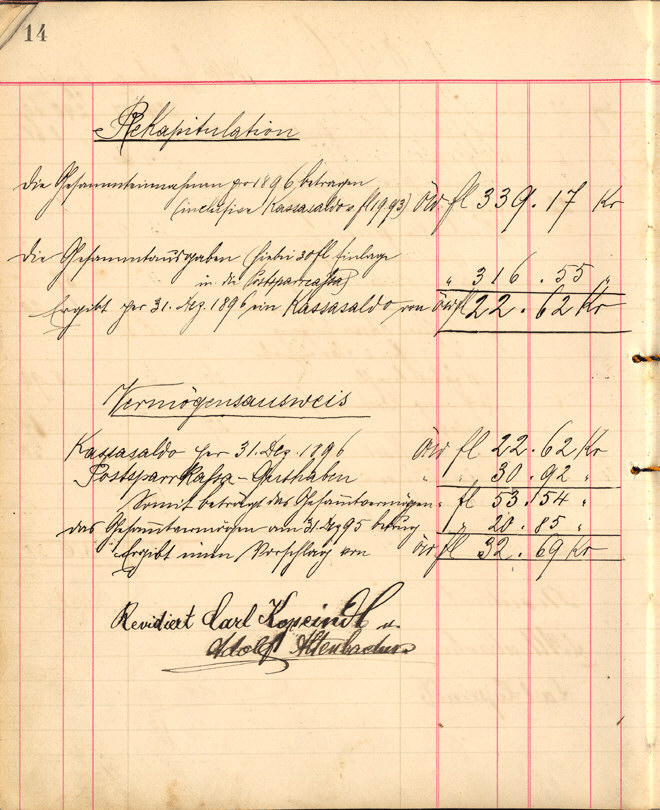 14
Rekapitulation
Die Gesammteinnahmen pro 1896 betragen
(inclusive Kassasaldo fl 19,93) ÖW fl 339.17 Kr
Die Gesammtausgaben (hiebei 30 fl. Einlage
in die Postsparcassa) " 316.55 "
Ergibt per 31. Dez. 1896 ein Kassasaldo von ÖW fl 22.62 Kr
Vermögensausweis
Kassasaldo per 31. Dez. 1896 ÖW fl 22.62 Kr
Postsparrkassa-Guthaben " " 30.92 "
Somit beträgt das Gesamtvermögen " fl 53.54 "
das Gesamtvermögen am 31. Dez 95 betrug " 20.85 "
Ergibt einen Vorschlag von ÖW fl 32.69 Kr
Revidiert Carl Kopeindl u.
Adolf Altenbacher